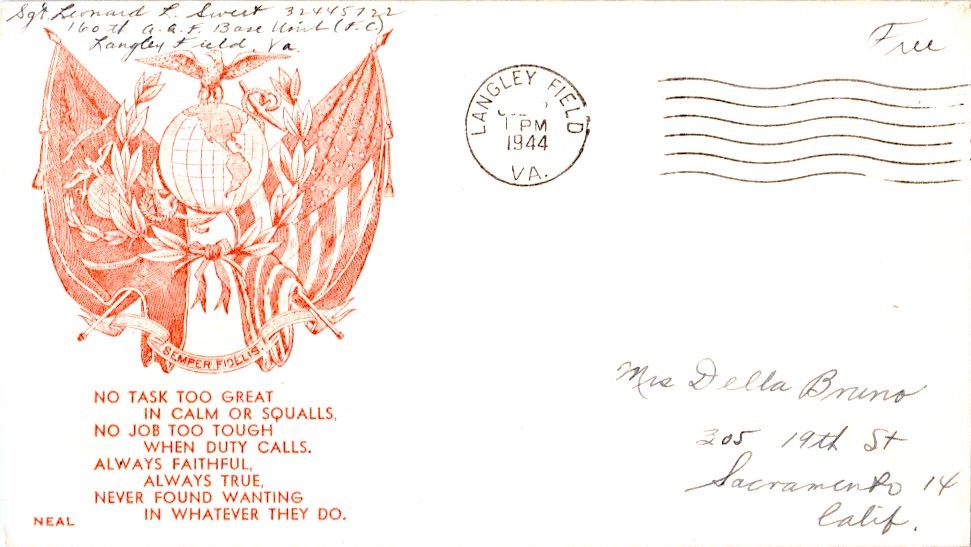 Sgt. Leonard L. Swert 32445722
160th A.A.F. Base Unit (F.C)
Langley Field, Va.
Free
LANGLEY FIELD
1 PM
1944
VA.
SEMPER FIDELIS.
NO TASK TOO GREAT
IN CALM OR SQUALLS,
NO JOB TOO TOUGH
WHEN DUTY CALLS.
ALWAYS FAITHFUL,
ALWAYS TRUE,
NEVER FOUND WANTING
IN WHATEVER THEY DO.
NEAL
Mrs Della Bruno
305 19th St
Sacramento 14
Calif.